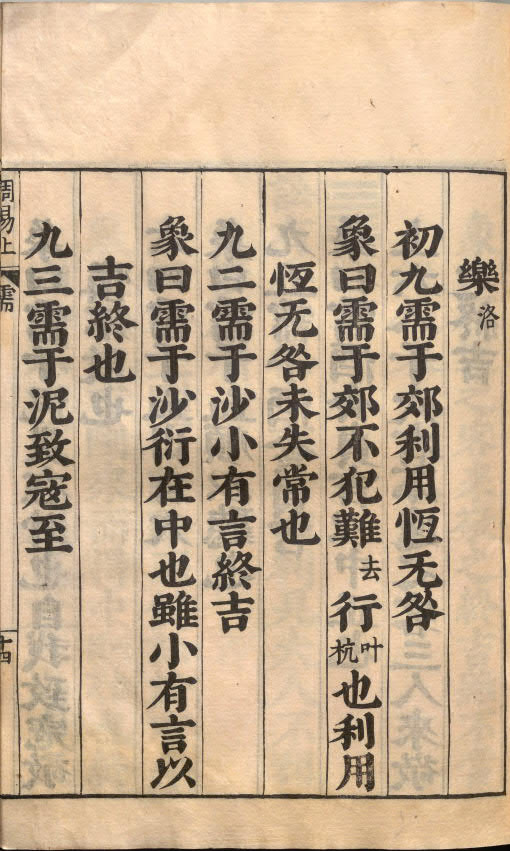 樂洛
初九需于郊利用恆无咎
象曰需于郊不犯難去行叶杭也利用
恆无咎未失常也
九二需于沙小有言終吉
象曰需于沙衍在中也雖小有言以
吉終也
九三需于泥致寇至
周易上 需 十四